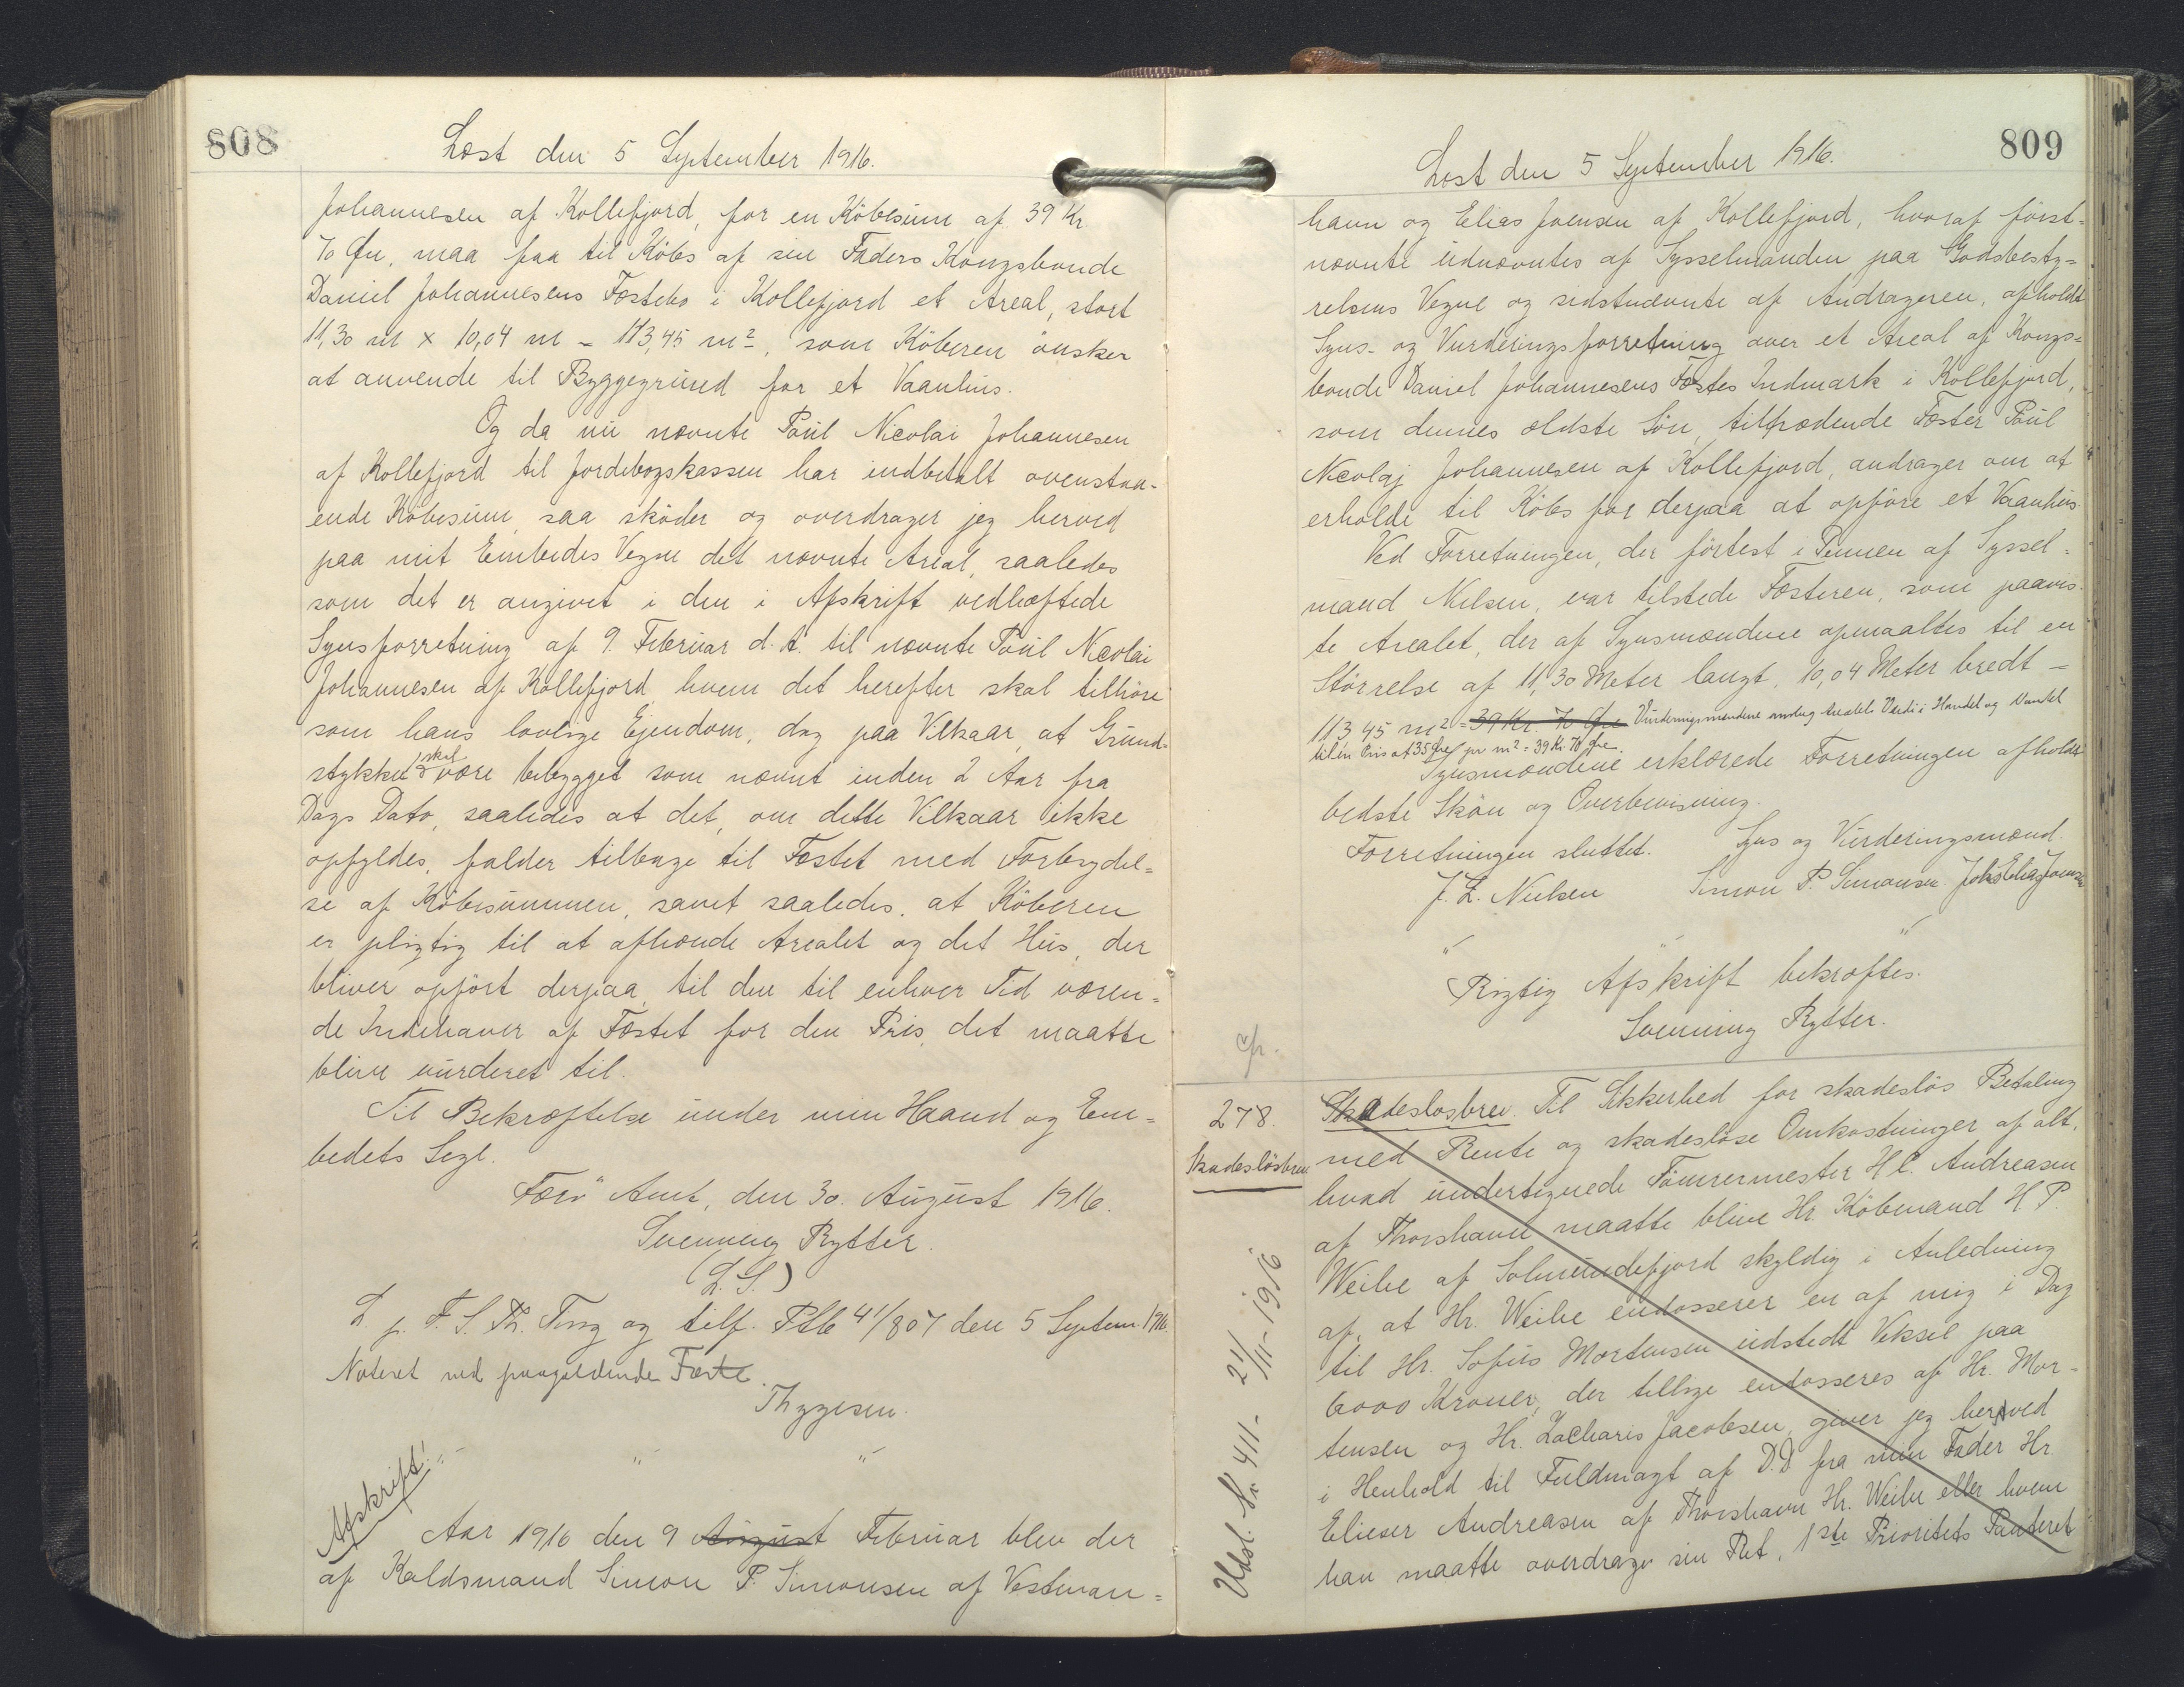 808
Læst den 5 September 1916.
Johannesen af Kollefjord, for en Köbesum af 39 Kr.
70 Øre, maa faa til Köbs af sin Faders Kongsbonde
Daniel Johannesens Fæstebo i Kollefjord et Areal, stort
11,30 m x 10,04 m = 113,45 m², som Köberen önsker
at anvende til Byggegrund for et Vaanhus.
Og da nu nævnte Poul Nicolai Johannesen
af Kollefjord til Jordebogskassen har indbetalt ovenstaa-
ende Köbesum, saa sköder og overdrager jeg herved
paa mit Embedes Vegne det nævnte Areal, saaledes
som det er angivet i den i Afskrift vedhæftede
Synsforretning af 9. Februar d. A. til nævnte Poul Nicolai
Johannesen af Kollefjord, hvem det herefter skal tilhöre
som hans lovlige Ejendom, dog paa Vilkaar, at Grund-
stykket skal være bebygget som nævnt inden 2 Aar fra
Dags Dato, saaledes at det, om dette Vilkaar ikke
opfyldes, falder tilbage til Fæstet med Forbrydel-
se af Köbesummen, samt saaledes, at Köberen
er pligtig til at afhænde Arealet og det Hus, der
bliver opfört derpaa, til den til enhver Tid væren-
de Indehaver af Fæstet for den Pris, det maatte
blive vurderet til.
Til Bekræftelse under min Haand og Em-
bedets Segl.
Færö Amt, den 30. August 1916.
Svenning Rytter.
(L.S.)
L. p. F. S. Th. Ting og tilf. Ptb 41/807 den 5 Septem. 1916.
Noteret ved paagældende Fæste.
Thygesen.
" " "
Afskrift!
Aar 1916 den 9 August Februar blev der
af Kaldsmand Simon P. Simonsen af Vestman-
809
Læst den 5 September 1916.
havn og Elias Joensen af Kollefjord, hvoraf först-
nævnte udnævntes af Sysselmanden paa Godsbesty-
relsens Vegne og sidstnævnte af Andrageren, afholdt
Syns- og Vurderingsforretning over et Areal af Kongs-
bonde Daniel Johannesens Fæstes Indmark i Kollefjord,
som dennes ældste Sön, tiltrædende Fæster Poul
Nicolaj Johannesen af Kollefjord, andrager om at
erholde til Köbs for derpaa at opföre et Vaanhus.
Ved Forretningen, der förtest i Pennen af Syssel-
mand Nielsen, var tilstede Fæsteren, som paavis-
te Arealet, der af Synsmændene opmaaltes til en
Störrelse af 11,30 Meter langt, 10,04 Meter bredt =
113,45 m² = 39 Kr. 70 Øre Vurderingsmændene ansaa Arealets Værdi i Handel og Vandel
til en Pris af 35 Øre pr m² = 39 Kr. 70 Øre.
Synsmændene erklærede Forretningen afholdt
bedste Skön og Overbevisning.
Forretningen sluttet. Syns og Vurderingsmænd.
J. L. Nielsen Simon P. Simonsen Johs Elias Joensen
" " "
Rigtig Afskrift bekræftes.
Svenning Rytter.
cfr.
278.
Skadeslösbrev
Udsl. Nr. 411- 21/11-1916
Skadeslosbrev. Til Sikkerhed for skadeslös Betaling
med Rente og skadeslöse Omkostninger af alt,
hvad undertegnede Tömrermester H C. Andreasen
af Thorshavn maatte blive Hr. Köbmand H P.
Weihe af Solmundefjord skyldig i Anledning
af, at Hr. Weihe endosserer en af mig i Dag
til Hr. Sofus Mortensen udstedt Veksel paa
6000 Kroner, der tillige endosseres af Hr. Mor-
tensen og Hr. Zacharis Jacobsen, giver jeg herved
i Henhold til Fuldmagt af D.D fra min Fader Hr.
Elieser Andreasen af Thorshavn Hr. Weihe eller hvem
han maatte overdrage sin Ret, 1ste Prioritets Panteret